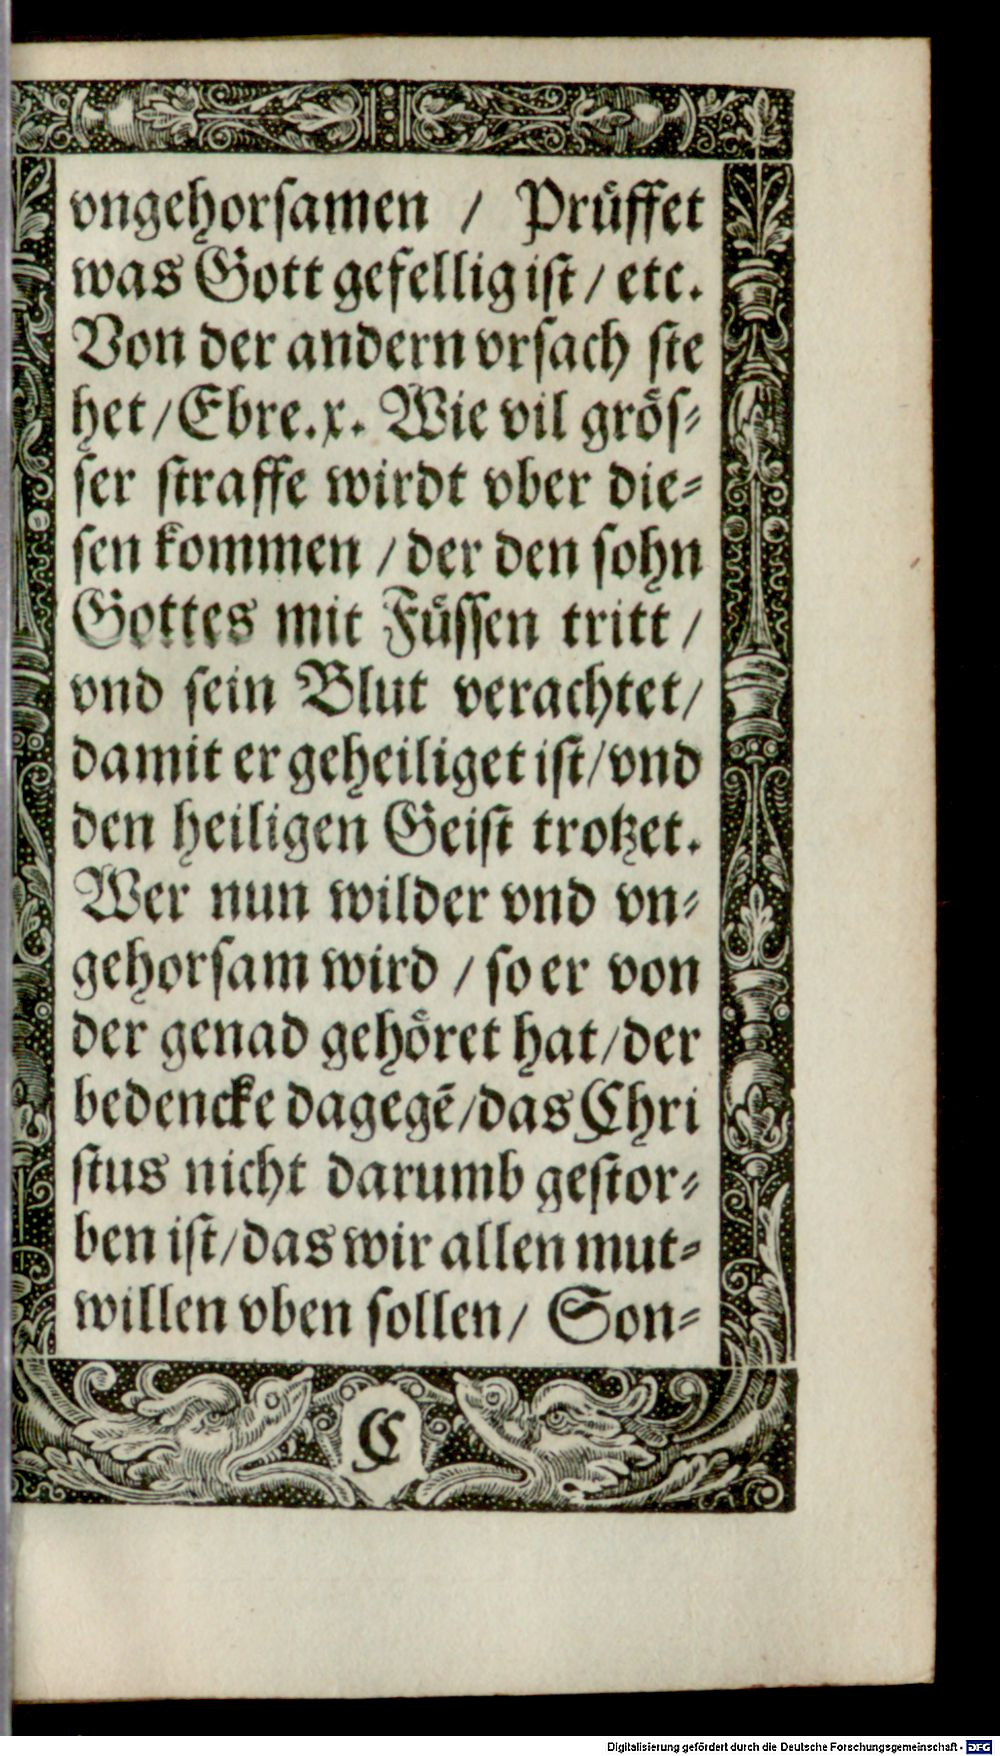 vngehorſamen / Pruͤffet
was Gott gefellig iſt / etc.
Von der andern vrſach ſte
het / Ebre. x. Wie vil groͤſ⸗
ſer ſtraffe wirdt vber die⸗
ſen kommen / der den ſohn
Gottes mit Fuͤſſen tritt /
vnd ſein Blut verachtet /
damit er geheiliget iſt / vnd
den heiligen Geiſt trotzet.
Wer nun wilder vnd vn⸗
gehorſam wird / ſo er von
der genad gehoͤret hat / der
bedencke dagegē / das Chri
ſtus nicht darumb geſtor⸗
ben iſt / das wir allen mut⸗
willen vben ſollen / Son⸗
C
Digitalisierung gefördert durch die Deutsche Forschungsgemeinschaft - DFG